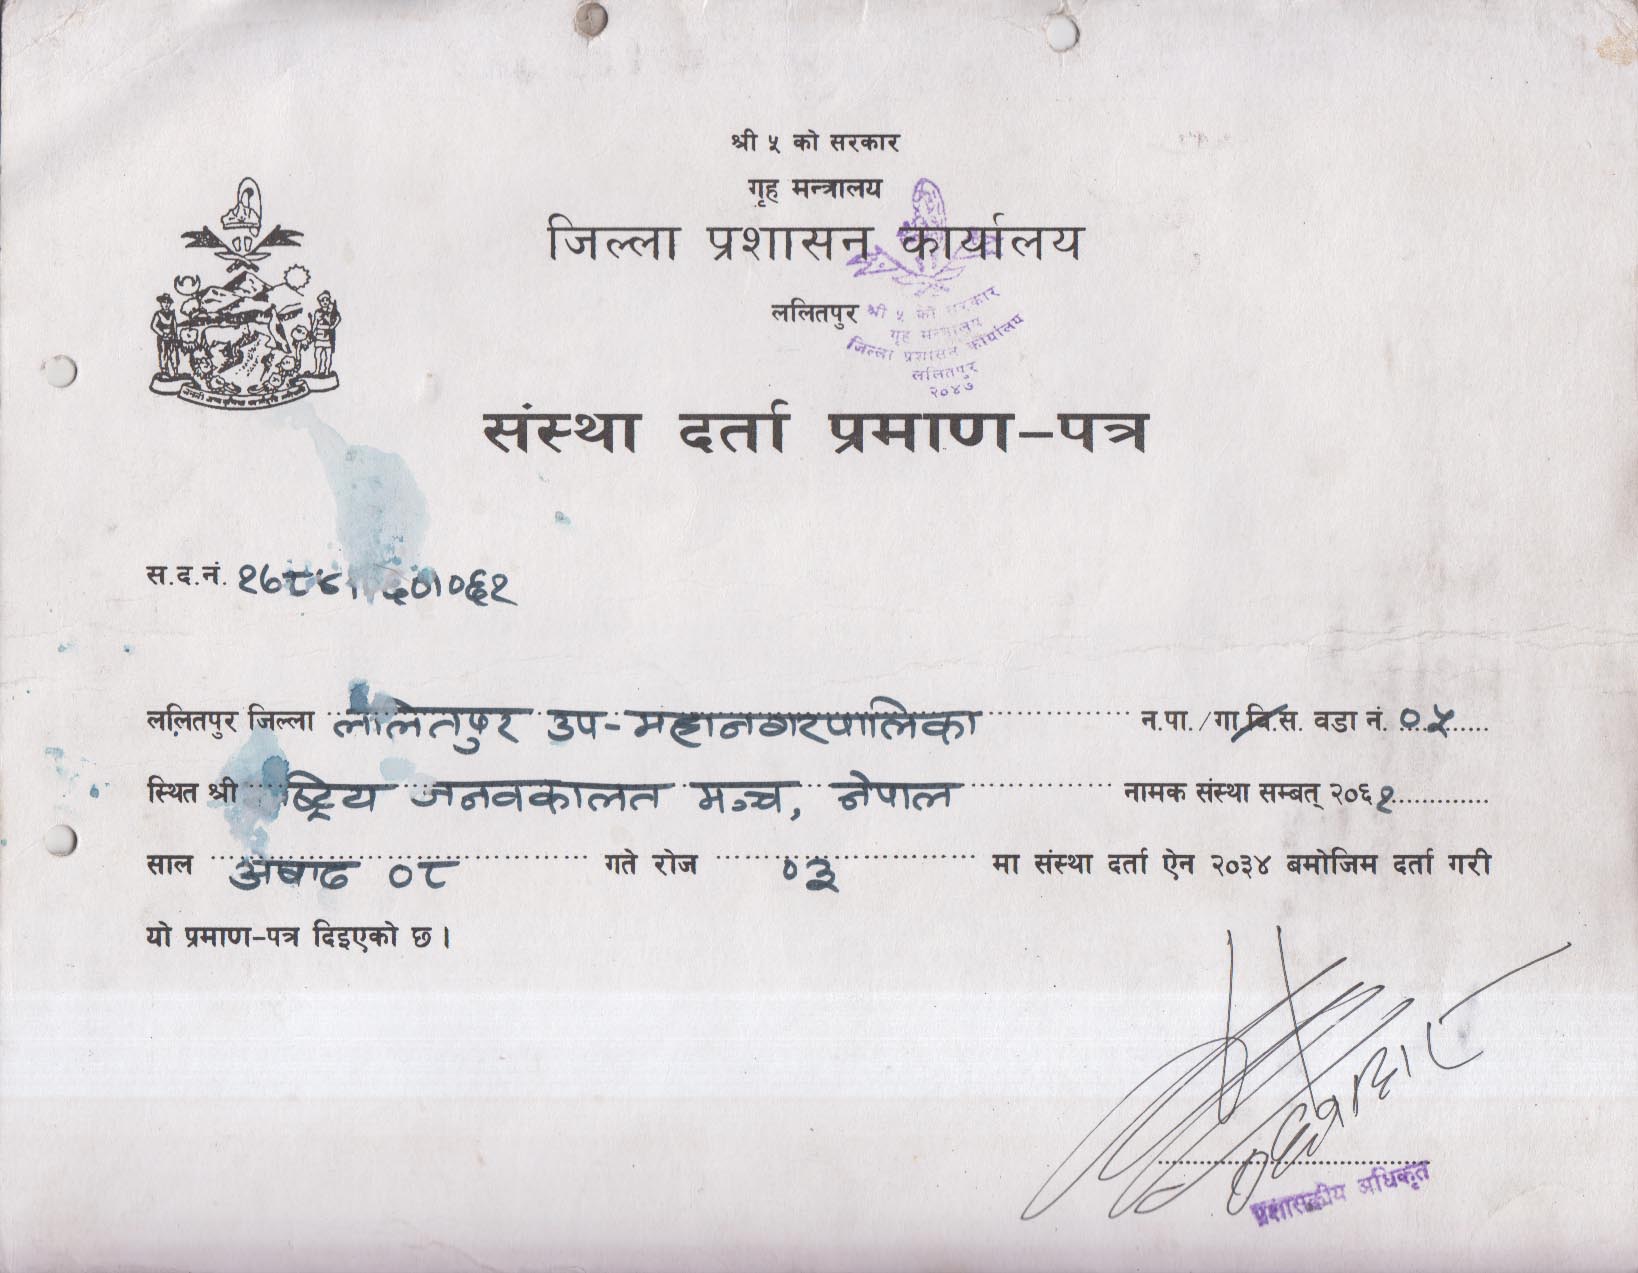 श्री ५ को सरकार
गृह मन्त्रालय
जिल्ला प्रशासन कार्यालय
ललितपुर
श्री ५ को सरकार
गृह मन्त्रालय
जिल्ला प्रशासन कार्यालय
ललितपुर
२०४७
संस्था दर्ता प्रमाण-पत्र
स.द.नं.
ललितपुर जिल्ला ललितपुर उप-महानगरपालिका न.पा./गा.वि.स. वडा नं. ०५
स्थित श्री ष्ट्रिय जनवकालत मञ्च, नेपाल नामक संस्था सम्बत् २०६१
साल अषाढ ०८ गते रोज ०३ मा संस्था दर्ता ऐन २०३४ बमोजिम दर्ता गरी
यो प्रमाण-पत्र दिइएको छ।
प्रशासकीय अधिकृत